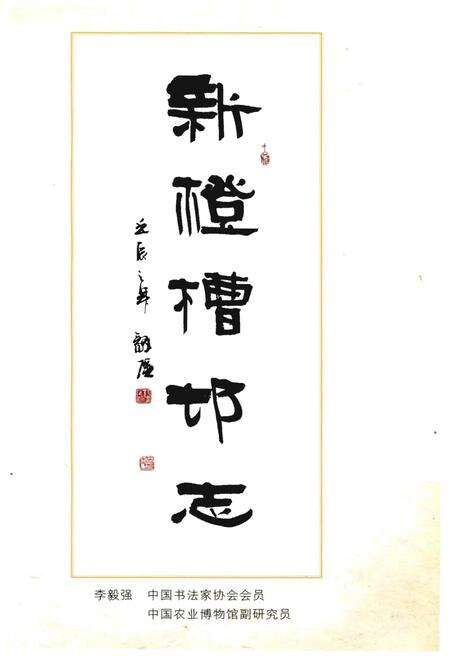 新橙槽邨志
壬辰之年 毅强
李毅强 中国书法家协会会员
中国农业博物馆副研究员